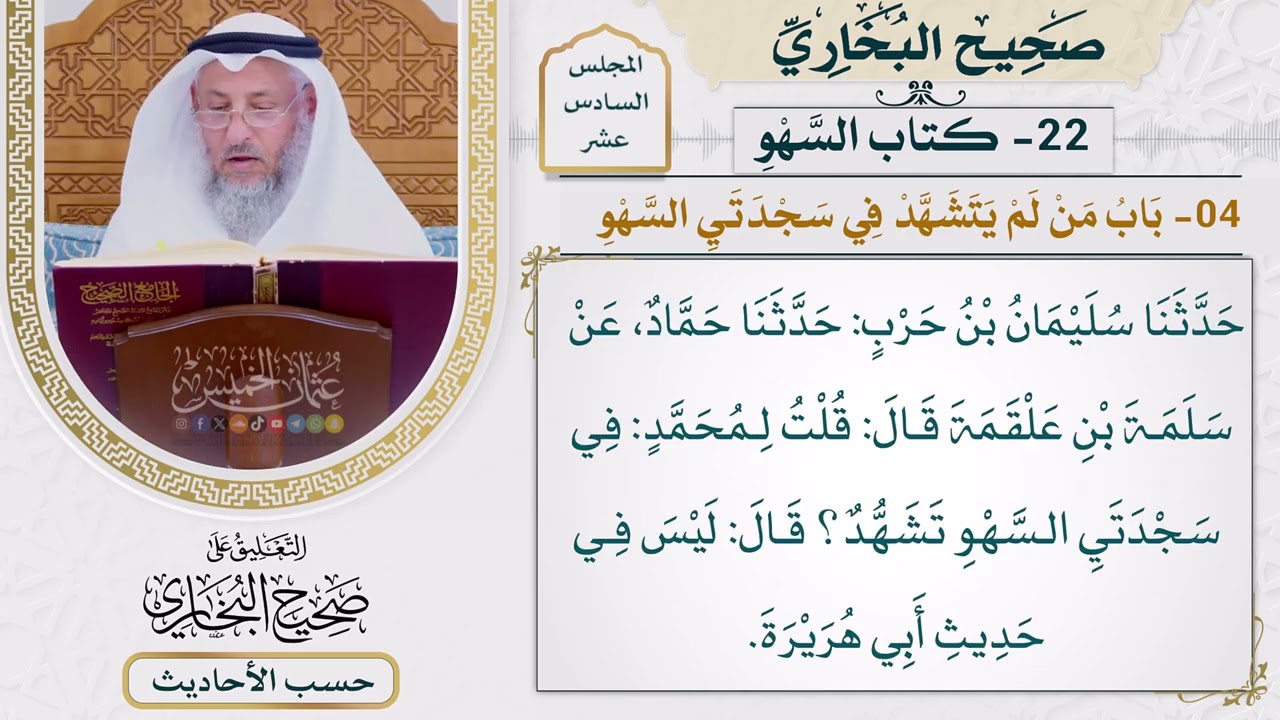 صَحِيح البُخَارِيِّ
المجلس
السادس
عشر
22- كتاب السَّهْوِ
04- بَابُ مَنْ لَمْ يَتَشَهَّدْ فِي سَجْدَتَيِ السَّهْوِ
حَدَّثَنَا سُلَيْمَانُ بْنُ حَرْبٍ: حَدَّثَنَا حَمَّادٌ، عَنْ
سَلَمَةَ بْنِ عَلْقَمَةَ قَالَ: قُلْتُ لِمُحَمَّدٍ: فِي
سَجْدَتَيِ السَّهْوِ تَشَهُّدٌ؟ قَالَ: لَيْسَ فِي
حَدِيثِ أَبِي هُرَيْرَةَ.
الجامع الصحيح
عُثمان الخميس
التَّعْلِيقُ عَلَى
صَحِيحِ البُخَارِي
حسب الأحاديث